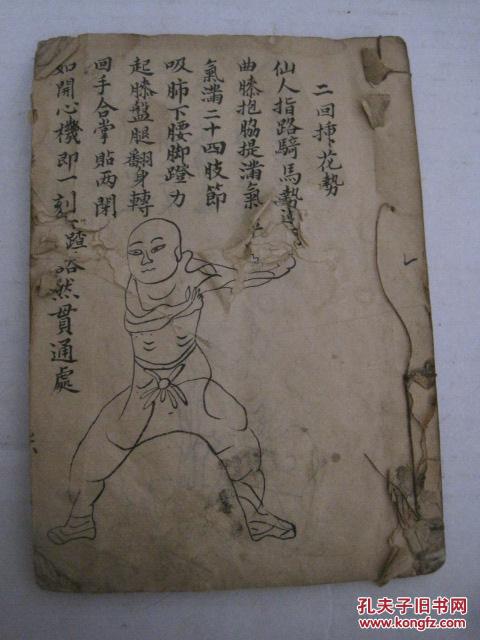 二回挿花勢
仙人指路騎馬勢
曲膝抱脇提滿氣
氣滿二十四肢節
吸肺下腰脚蹬力
起膝盤腿翻身轉
回手合掌貼兩閉
如開心機即一刻
然貫通處
孔夫子旧书网
www.kongfz.com